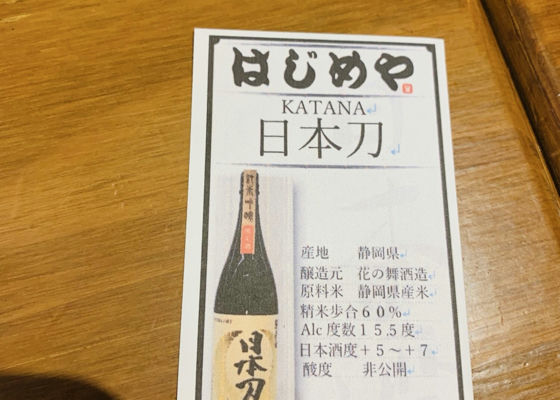 はじめや
KATANA
日本刀
純米吟醸
日本刀
産地 静岡県
醸造元 花の舞酒造
原料米 静岡県産米
精米歩合60%
Alc度数15.5度
日本酒度+5~+7
酸度 非公開